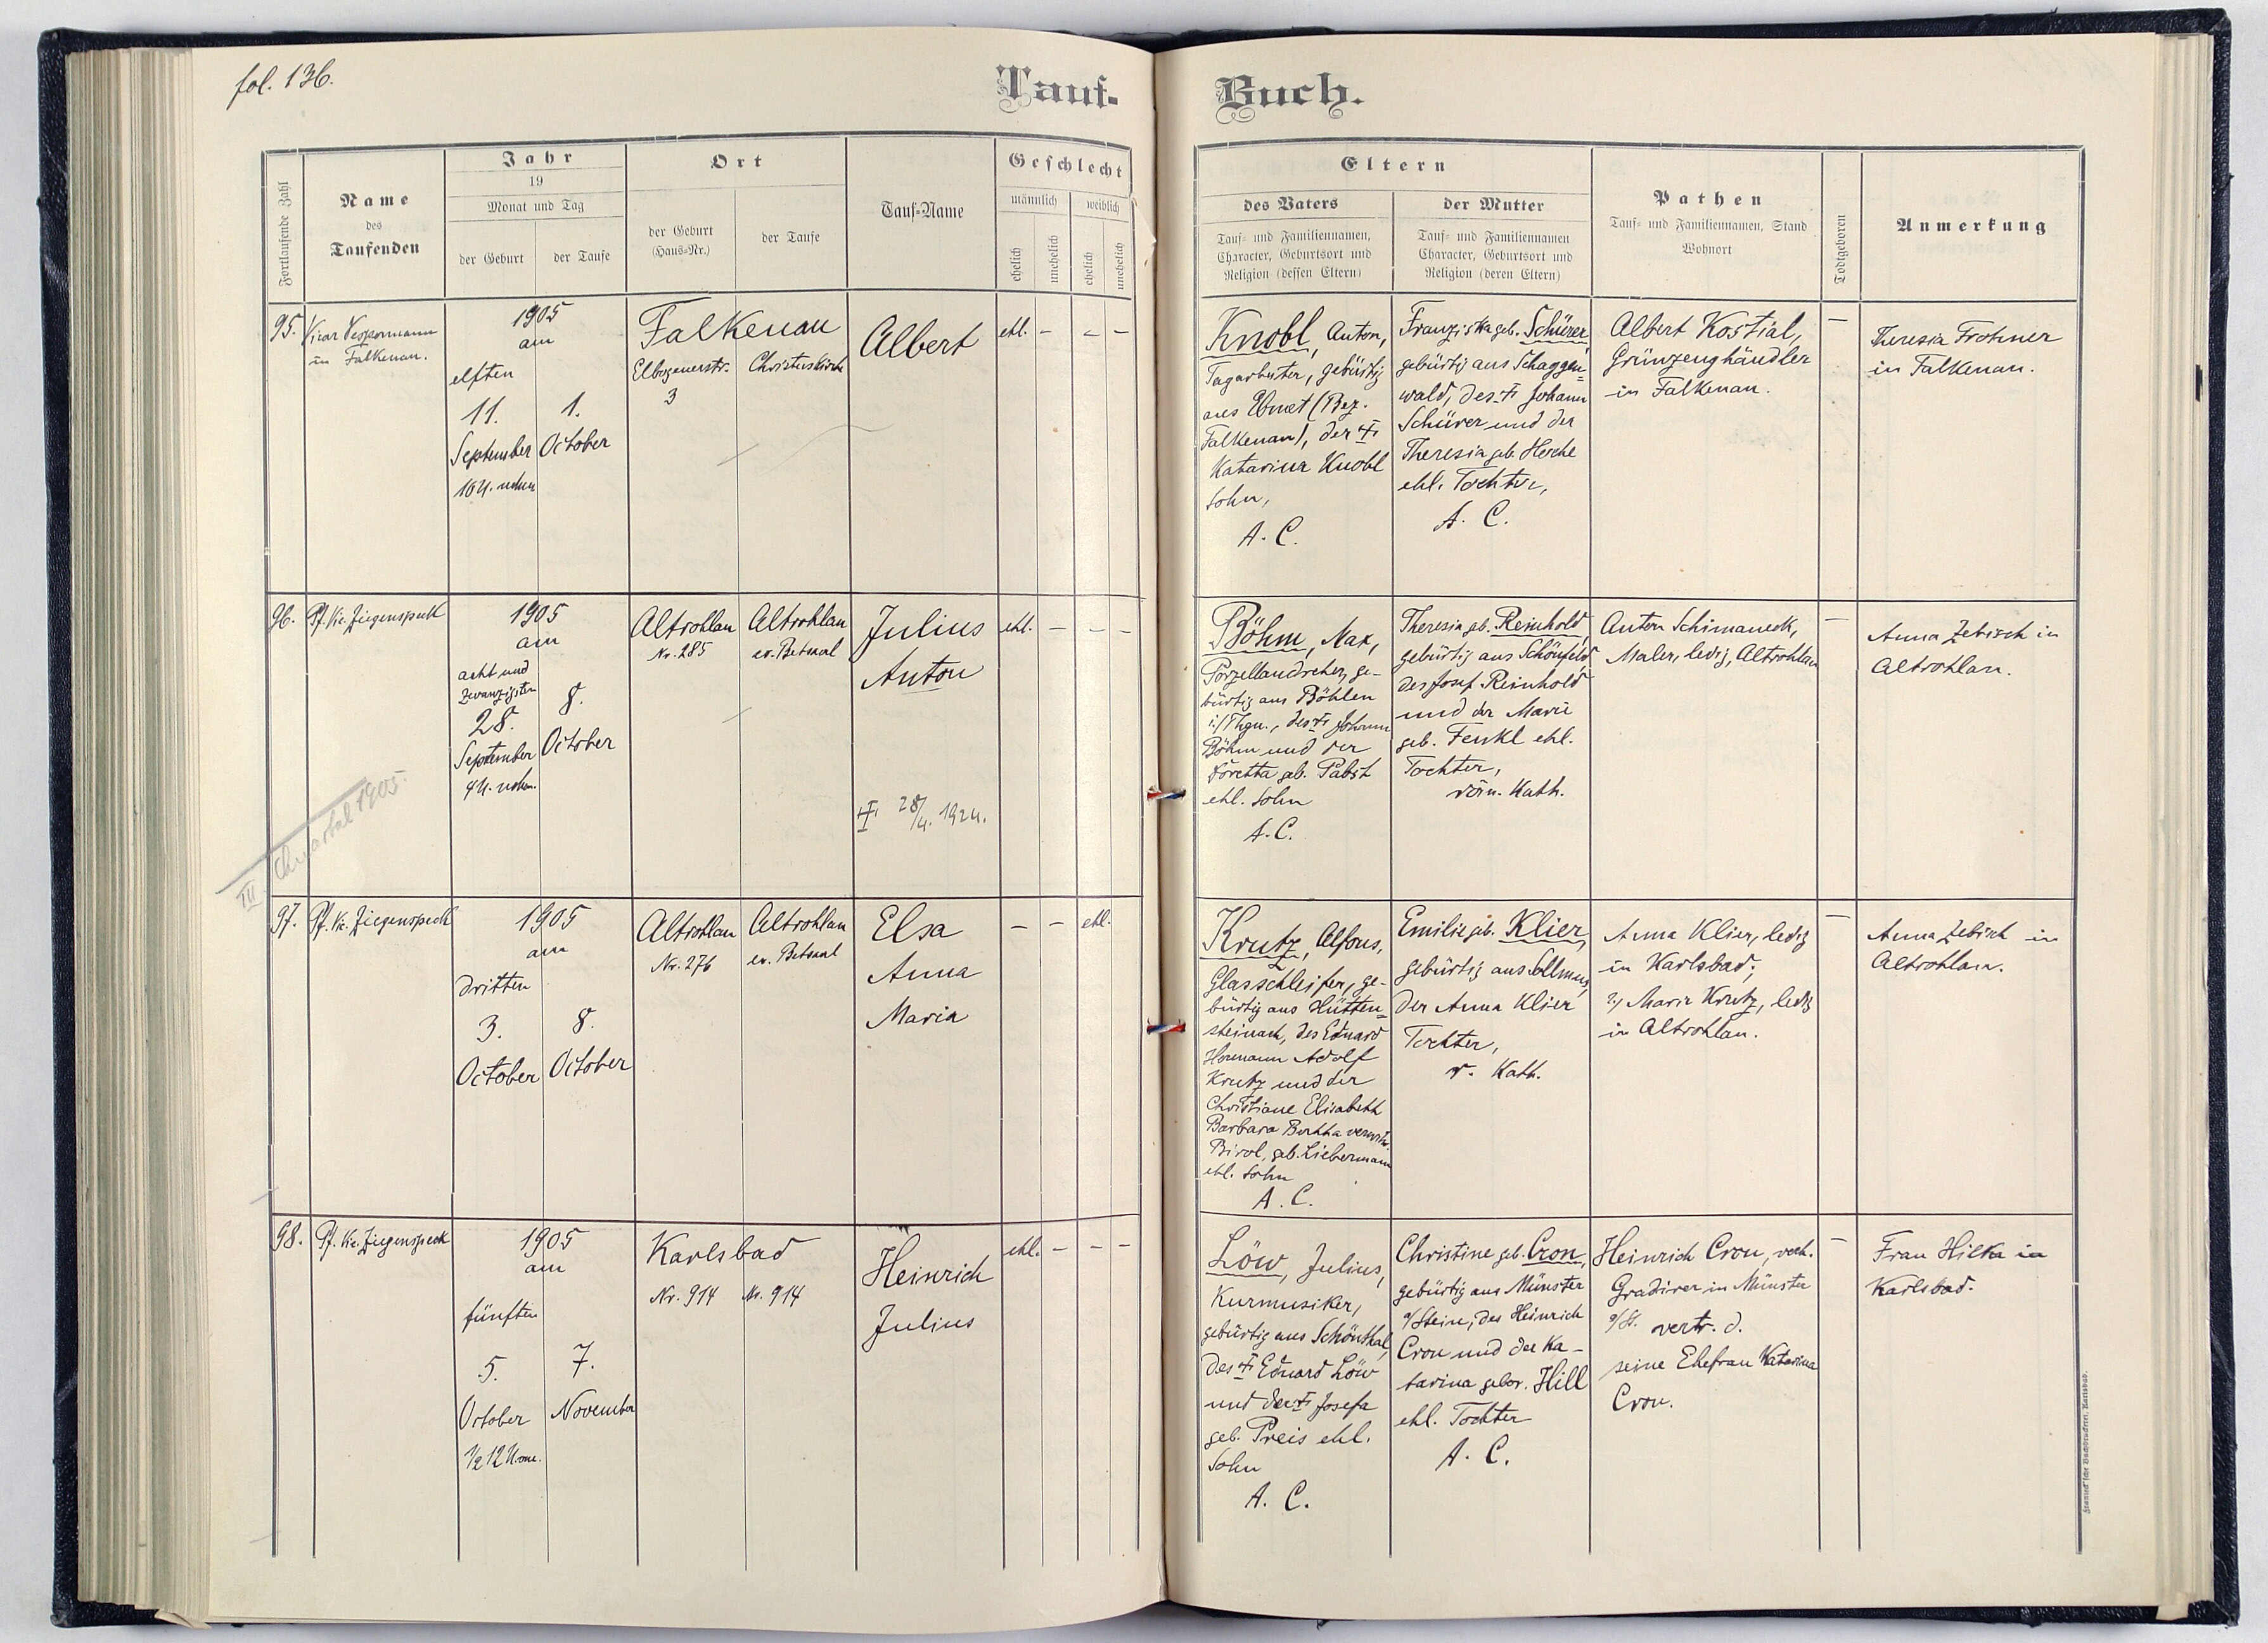 fol. 136.
Tauf-
Buch.
Fortlaufende Zahl
Name
des
Taufenden
Jahr
19
Monat und Tag
der Geburt
der Taufe
Ort
der Geburt
(Haus-Nr.)
der Taufe
Tauf-Name
Geschlecht
männlich
weiblich
ehelich
unehelich
ehelich
unehelich
Eltern
des Vaters
Tauf- und Familiennamen,
Character, Geburtsort und
Religion (dessen Eltern)
der Mutter
Tauf- und Familiennamen
Character, Geburtsort und
Religion (deren Eltern)
Pathen
Tauf- und Familiennamen, Stand
Wohnort
Todtgeboren
Anmerkung
95.
Vicar Vespermann
in Falkenau.
1905
am
elften
11.
September
10 U. nchm
1.
October
Falkenau
Elbogenerstr.
3
Christuskirche
Albert
ehl. – – –
Knobl, Anton,
Tagarbeiter, gebürtig
aus Ebmet (Bez.
Falkenau), der
Katarina Knobl
Sohn,
A. C.
Franziska geb. Schürer,
gebürtig aus Schaggen=
wald, des Johann
Schürer und der
Theresia geb. Hoche
ehl. Tochter,
A. C.
Albert Kostial,
Grünzeughändler
in Falkenau.
–
Theresia Frohner
in Falkenau.
96.
Pf. Vic. Ziegenspeck
1905
am
acht und
zwanzigsten
28.
September
4 U. nchm.
8.
October
Altrohlau
Nr. 285
Altrohlau
ev. Betsaal
Julius
Anton
28/4. 1924.
ehl. – – –
Böhm, Max,
Porzellandreher, ge-
bürtig aus Böhlen
i./Thgn., des Johann
Böhm und der
Loretta geb. Pabst
ehl. Sohn
A. C.
Theresia geb. Reinhold,
gebürtig aus Schönfeld,
des Josef Reinhold
und der Marie
geb. Fenkl ehl.
Tochter,
röm. Kath.
Anton Schimaneck,
Maler, ledig, Altrohlau
–
Anna Zebisch in
Altrohlau.
III. Quartal 1905.
97.
Pf. Vic. Ziegenspeck
1905
am
dritten
3.
October
8.
October
Altrohlau
Nr. 276
Altrohlau
ev. Betsaal
Elsa
Anna
Maria
– – ehl.
Krutz, Alfons,
Glasschleifer, ge-
bürtig aus Hütten=
steinach, des Eduard
Hermann Adolf
Krutz und der
Christiane Elisabeth
Barbara Bertha verwitw.
geb. Liebermann
ehl. Sohn
A. C.
Emilie geb. Klier,
gebürtig aus Sollmus,
der Anna Klier
Tochter,
r. Kath.
Anna Klier, ledig
in Karlsbad;
2., Marie Krutz, ledig
in Altrohlau.
–
Anna Zebisch in
Altrohlau.
98.
Pf. Vic. Ziegenspeck
1905
am
fünften
5.
October
1/2 12 U
7.
November
Karlsbad
Nr. 914
Nr. 914
Heinrich
Julius
ehl. – – –
Löw, Julius,
Kurmusiker,
gebürtig aus Schönthal,
des Eduard Löw
und der Josefa
geb. Preis ehl.
Sohn
A. C.
Christine geb. Cron,
gebürtig aus Münster
a/Stein, des Heinrich
Cron und der Ka-
tarina gebor. Hill
ehl. Tochter
A. C.
Heinrich Cron, verh.
Gradirer in Münster
a/St. vertr. d.
seine Ehefrau Katarina
Cron.
–
Frau Hilka in
Karlsbad.
Franieck'sche Buchdruckerei, Karlsbad.